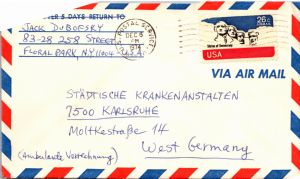 AFTER 5 DAYS RETURN TO
JACK DUBOFSKY
83-28 258 STREET
FLORAL PARK, N.Y. 11004 U.S.A.
POSTAL SERVICE
DEC 6
PM
26c
Shrine of Democracy
USA
VIA AIR MAIL
STÄDTISCHE KRANKENANSTALTEN
7500 KARLSRUHE
MOLTKESTRAßE 14
WEST GERMANY
(Ambulante Verrechnung)